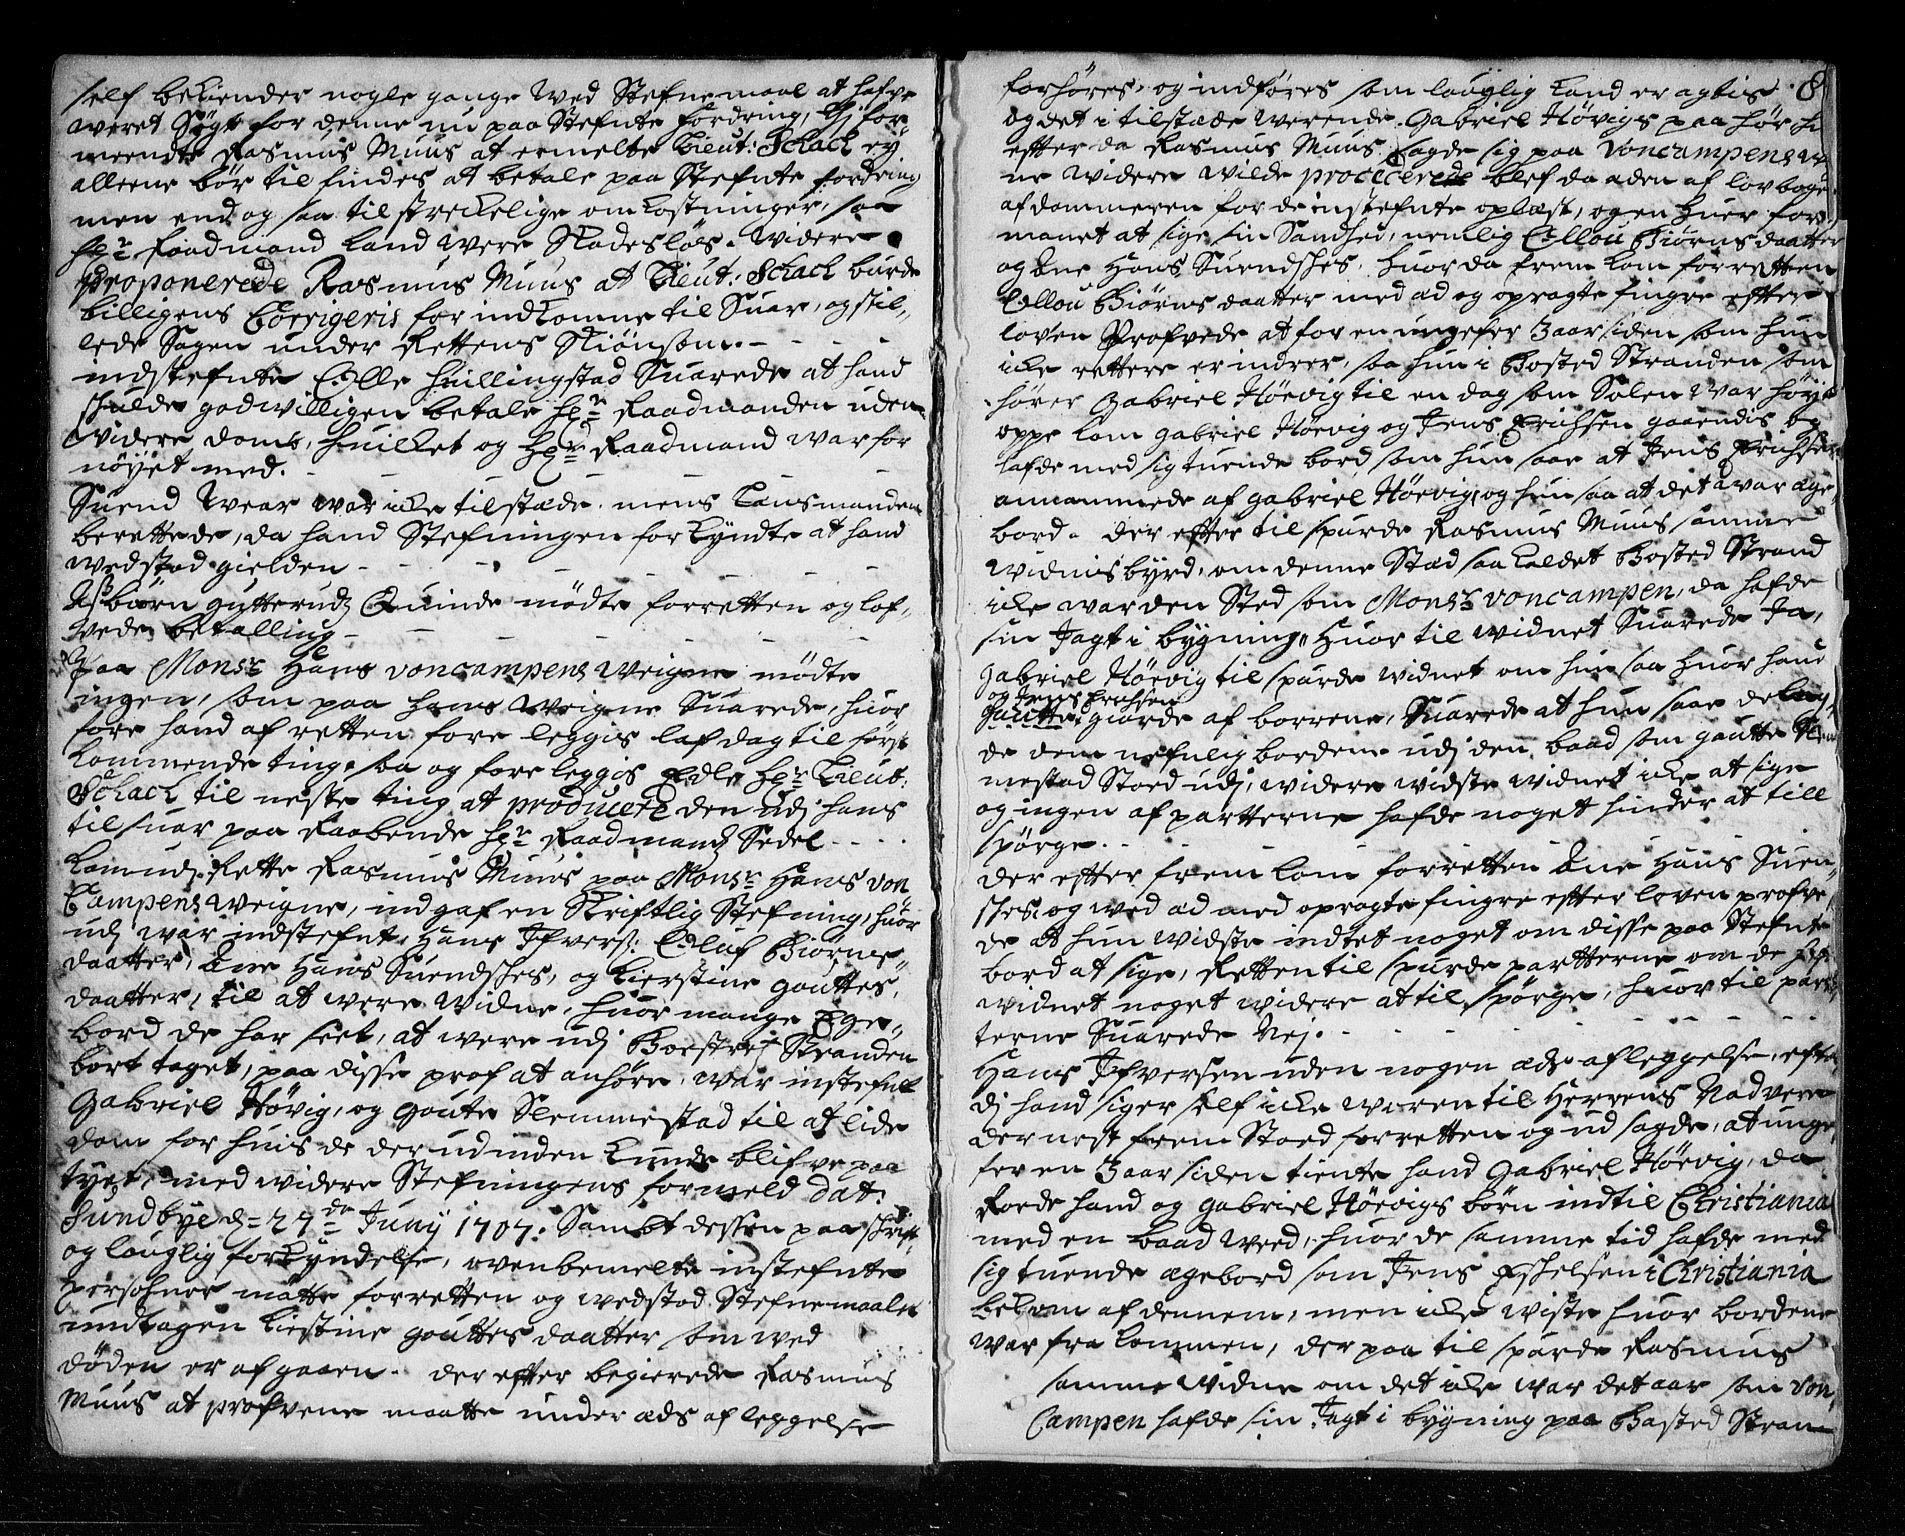 self bekiender nogle gange wed Stefnemaal at hafve
weret Søgt for denne nu paa Stefnte fordring, thi for
meendte Rasmus Muus at ermelte Lieut: Schach ey
alleene bør tilfindes at betale paa Stefnte fordring
men end og saa tilstreckelige omkostninger, saa
Hr Raadmand kand were Skadesløs. Widere
proponerede Rasmus Muus at Lieut: Schach burde
billigens Corrigeris for indkomne til Suar, og stil„
lede Sagen under Rettens Skiønsom. - - -
indstefnte Olle Huillingstad Suarede at hand
skulde godwilligen betale Hr Raadmanden uden
widere domb, huilket og Hr Raadmand war for
nøyet med. - - - - -
Suend Wear war icke tilstæde, mens Lensmanden
berettede, da hand Stefningen forkyndte at hand
wedstod gielden - - - - -
Asbiørn Gutterudz Quinde mødte for retten og lof„
wede betalling - - - - -
Paa Monsr Hans voncampens weigne mødte
ingen, som paa hans weigne Suarede, huor
fore hand af retten fore leggis lafdag til først
kommende ting, saa og foreleggis Edle Hr Lieut:
Schach til neste ting at producere den udj hans
tilsuar paa Raabende Hr Raadmands Sedel - - -
kom udj Rette Rasmus Muus paa Monsr Hans von
Campens weigne, indgaf en Skriftlig Stefning, huor
udj war indstefnt, Hans Ifvers: Ollaf Biørns„
daatter, Ane Hans Suendshes, og Kierstine Gouttes„
daatter, til at were widne, huor mange Ege„
bord de har seet, at were udj Boested Stranden
bort taget, paa disse prof at anhøre, war instefnt
Gabriel Høvig, og Goute Slemmestad til at lide
dom for huis de der udinden kunde blifve paa
tyet, med widere Stefningens formeld dat:
Sundbye d= 27de Juny 1707: Sambt dessen paaskrift
og louglig forkyndelse, ovenbemelte instefnte
personer møtte for retten og wedstod Stefnemaalet
undtagen Kiestine Gouttes daatter som wed
døden er afgaaen. der efter begierede Rasmus
Muus at profvene maatte under æds afleggelse
forhøres, og indføres som lauglig kand eragtis. 8
og det i tilstæde werende Gabriel Høvigs paa hør, hu
efter da Rasmus Muus sagde sig paa Voncampens we
ne widere wilde procedere blef da æden af lovboge
af dommeren for de instefnte oplæst, og en huer for„
manet at sige sin Sandhed, nemlig Ollou Biørns daatter
og Ane Hans Suendshes, huor da frem kom for retten
Ollou Biørns daatter med æd og opragte fingre efter
loven Profvede at for en ungefer 3 aar siden som hun
icke rettere erindrer, saa hun i Bosted Stranden som
hører Gabriel Høevig til en dag som Solen war høyt
oppe kom Gabriel Høevig og Jens Erichsen gaaendis og
hafde med sig tuende bord som hun saae at Jens Erichsen
annammede af Gabriel Høevig, og hun saa at det war æge„
bord. der efter tilspurde Rasmus Muus samme
widnisbyrd, om denne Stæd saa kaldet Bosted Strand
icke war den Sted som Monsr voncampen, da hafde
sin Jagt i bygning, Huor til widnet Suarede Ja,
Gabriel Høevig tilspurde widnet om hun saa huor hand
og Jens Erichsen
Goutte, giorde af borrene, Suarede at hun saae de lag„
de dem nefnlig bordene udj den baad som Goutte Slem
mestad Stoed udj, widere widste widnet icke at sige
og ingen af partterne hafde noget hinder at till
spørge. - - - - -
der efter frem kom for retten Ane Hans Suen„
shes, og wed æd med opragte fingre efter loven profve„
de at hun widste indtet noget om disse paa Stefnte
bord at sige, Retten tilspurde partterne om de hafde
widnet noget widere at tilspørge, huor til part„
terne Suarede Nej. - - - - -
Hans Ifversen uden nogen æds afleggelse, efter
dj hand siger self icke weren til Herrens Nadvere
dernest frem Stoed for retten og udsagde, at unge„
fer en 3 aar siden tiente hand Gabriel Høevig, da
Roede hand og Gabriel Høevigs børn indtil Christiania
med en baad weed, huor de samme tid hafde med
sig tuende ægebord som Jens Eshelsen i Christiania
bekom af dennem, men icke wiste huor bordene
war fra kommen, der paa tilspurde Rasmus
samme widne om det icke war det aar som Von„
Campen hafde sin Jagt i bygning paa Basted Stran